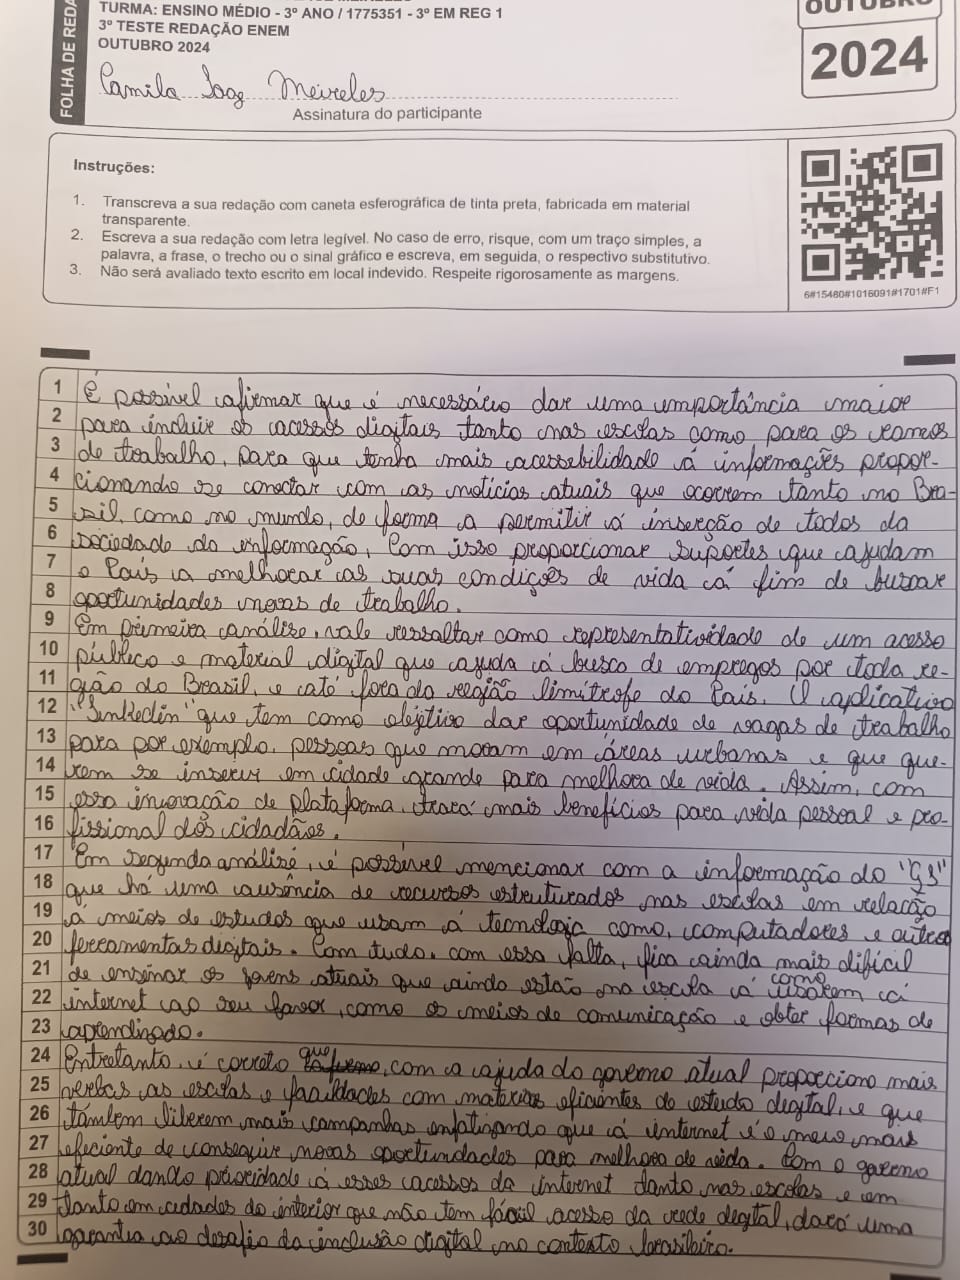 FOLHA DE REDA
TURMA: ENSINO MÉDIO - 3º ANO / 1775351 - 3º EM REG 1
3º TESTE REDAÇÃO ENEM
OUTUBRO 2024
OUTUBRO
2024
Camila Meireles
Assinatura do participante
Instruções:
1. Transcreva a sua redação com caneta esferográfica de tinta preta, fabricada em material
transparente.
2. Escreva a sua redação com letra legível. No caso de erro, risque, com um traço simples, a
palavra, a frase, o trecho ou o sinal gráfico e escreva, em seguida, o respectivo substitutivo.
3. Não será avaliado texto escrito em local indevido. Respeite rigorosamente as margens.
6#15480#1016091#1701#F1
1 É possível afirmar que é necessário dar uma importância maior
2 para incluir os acessos digitais tanto nas escolas como para os ramos
3 de trabalho, para que tenha mais acessebilidade á informações propor-
4 cionando se conectar com as notícias atuais que ocorrem tanto no Bra-
5 sil, como no mundo, de forma a permitir á inserção de todos da
6 sociedade do informação, Com isso proporcionar suportes que ajudam
7 o País a melhorar as suas condições de vida á fim de buscar
8 oportunidades novas de trabalho.
9 Em primeira análise, vale ressaltar como representatividade de um acesso
10 público e material digital que ajuda á busca de empregos por toda re-
11 gião do Brasil, e até fora da região limítrofe do País. O aplicativo
12 "Linkedin" que tem como objetivo dar oportunidade de vagas de trabalho
13 para por exemplo, pessoas que moram em áreas urbanas e que que-
14 rem se inserir em cidade grande para melhora de vida. Assim, com
15 essa inovação de plataforma, trará mais benefícios para vida pessoal e pro-
16 fissional dos cidadãos.
17 Em segunda análise, é possível mencionar com a informação do "G1"
18 que há uma ausência de recursos estruturados nas escolas em relação
19 á meios de estudos que usam á tecnologia como, computadores e outras
20 ferramentas digitais. Com tudo, com essa falta, fica ainda mais difícil
21 de ensinar os jovens atuais que ainda estão na escola á como usarem á
22 internet ao seu favor, como os meios de comunicação e obter formas de
23 aprendizado.
24 Entretanto, é correto que, com a ajuda do governo atual proporciono mais
25 verbas as escolas e faculdades com materias eficientes de estudo degital, e que
26 também liberem mais campanhas enfatizando que á internet é o meio mais
27 efeciente de conseguir novas oportunidades para melhora de vida. Com o governo
28 atual dando prioridade á esses acessos da internet tanto nas escolas e em
29 tanto em cidades do interior que não tem fácil acesso da rede degital, dará uma
30 garantia ao desafio da inclusão digital no contexto brasileiro.